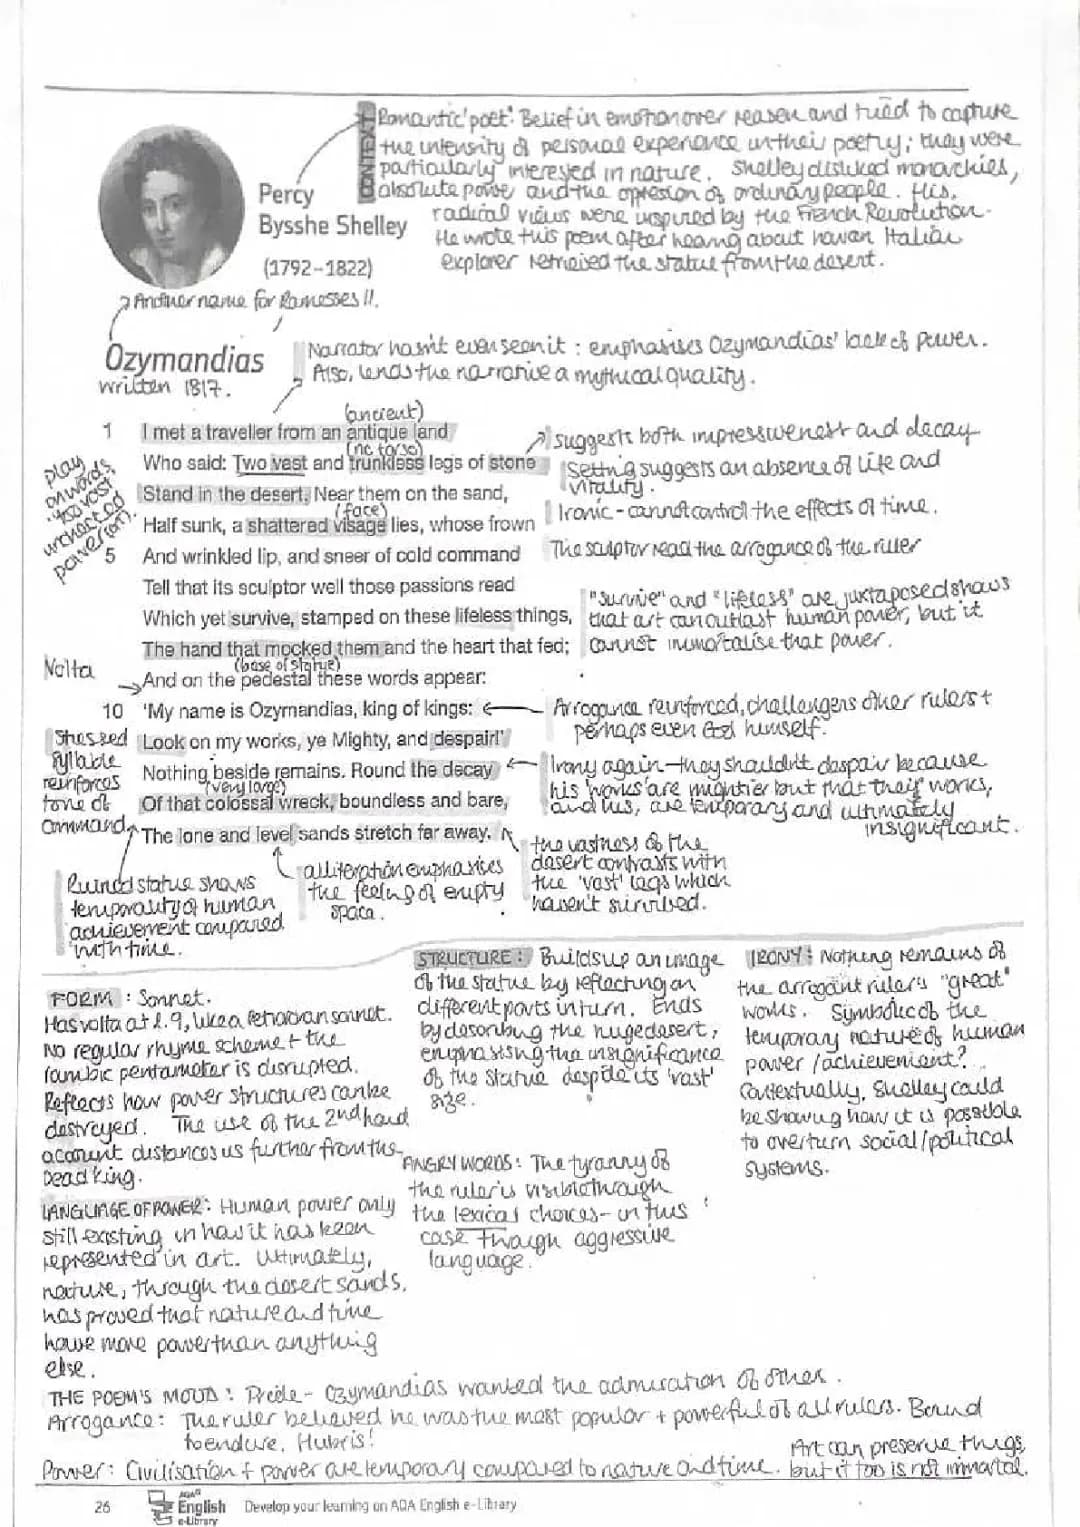 CONTEXT
'Romantic' poet: Belief in emotion over reason and tried to capture
the intensity of personal experience in their poetry; they were
particularly interested in nature. Shelley disliked monarchies,
absolute power and the oppresion of ordinary people. His
radical views were inspired by the French Revolution.
He wrote this poem after hearing about how an Italian
explorer retrieved the statue from the desert.
Percy
Bysshe Shelley
(1792–1822)
Another name for Ramesses II.
Ozymandias
written 1817.
Narrator hasn't even seen it : emphasises Ozymandias' lack of power.
Also, lends the narrative a mythical quality.
(ancient)
1 I met a traveller from an antique land
(no torso)
Who said: Two vast and trunkless legs of stone
Stand in the desert. Near them on the sand,
(face)
Half sunk, a shattered visage lies, whose frown
5 And wrinkled lip, and sneer of cold command
Tell that its sculptor well those passions read
Which yet survive, stamped on these lifeless things,
The hand that mocked them and the heart that fed;
(base of statue)
And on the pedestal these words appear:
10 'My name is Ozymandias, king of kings:
Look on my works, ye Mighty, and despair!'
Nothing beside remains. Round the decay
(very large)
Of that colossal wreck, boundless and bare,
The lone and level sands stretch far away.
play
on words,
power
suggests both impressiveness and decay
Setting suggests an absence of life and
vitality.
Ironic - cannot control the effects of time.
The sculptor read the arrogance of the ruler
"survive" and "lifeless" are juxtaposed shows
that art can outlast human power, but it
cannot immortalise that power.
Volta
Arrogance reinforced, challengers other rulers +
perhaps even God himself.
Stressed
syllable
reinforces
tone of
command
Irony again - they shouldn't despair because
his 'works' are mightier but that their works,
and his, are temporary and ultimately
insignificant.
the vastness of the
desert contrasts with
the 'vast' legs which
haven't survived.
alliteration emphasises
the feeling of empty
space.
Ruined statue shows
temporality of human
achievement compared
with time.
FORM : Sonnet.
Has volta at l.9, like a Petrarchan sonnet.
No regular rhyme scheme + the
iambic pentameter is disrupted.
Reflects how power structures can be
destroyed. The use of the 2nd hand
account distances us further from the
Dead king.
LANGUAGE OF POWER: Human power only
still existing in how it has been
represented in art. Ultimately,
nature, through the desert sands,
has proved that nature and time
have more power than anything
else.
STRUCTURE : Builds up an image
of the statue by reflecting on
different parts in turn. Ends
by describing the huge desert,
emphasising the insignificance
of the statue despite its 'vast'
size.
ANGRY WORDS: The tyranny of
the ruler is visible through
the lexical choices - in this
case through aggressive
language.
IRONY : Nothing remains of
the arrogant ruler's "great"
works. Symbolic of the
temporary nature of human
power / achievement?
Contextually, Shelley could
be showing how it is possible
to overturn social/political
systems.
THE POEM'S MOOD : Pride - Ozymandias wanted the admiration of other.
Arrogance: The ruler believed he was the most popular + powerful of all rulers. Bound
to endure. Hubris!
Power: Civilisation + power are temporary compared to nature and time. Art can preserve things,
but it too is not immortal.
26
AQA
English
e-Library
Develop your learning on AQA English e-Library